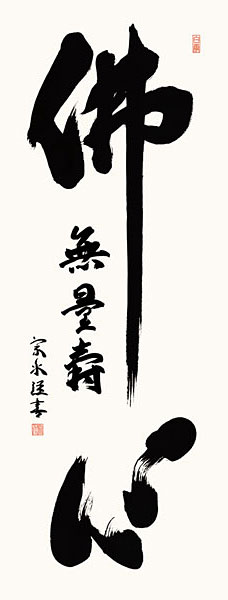 佛心
無量壽
宗水謹書